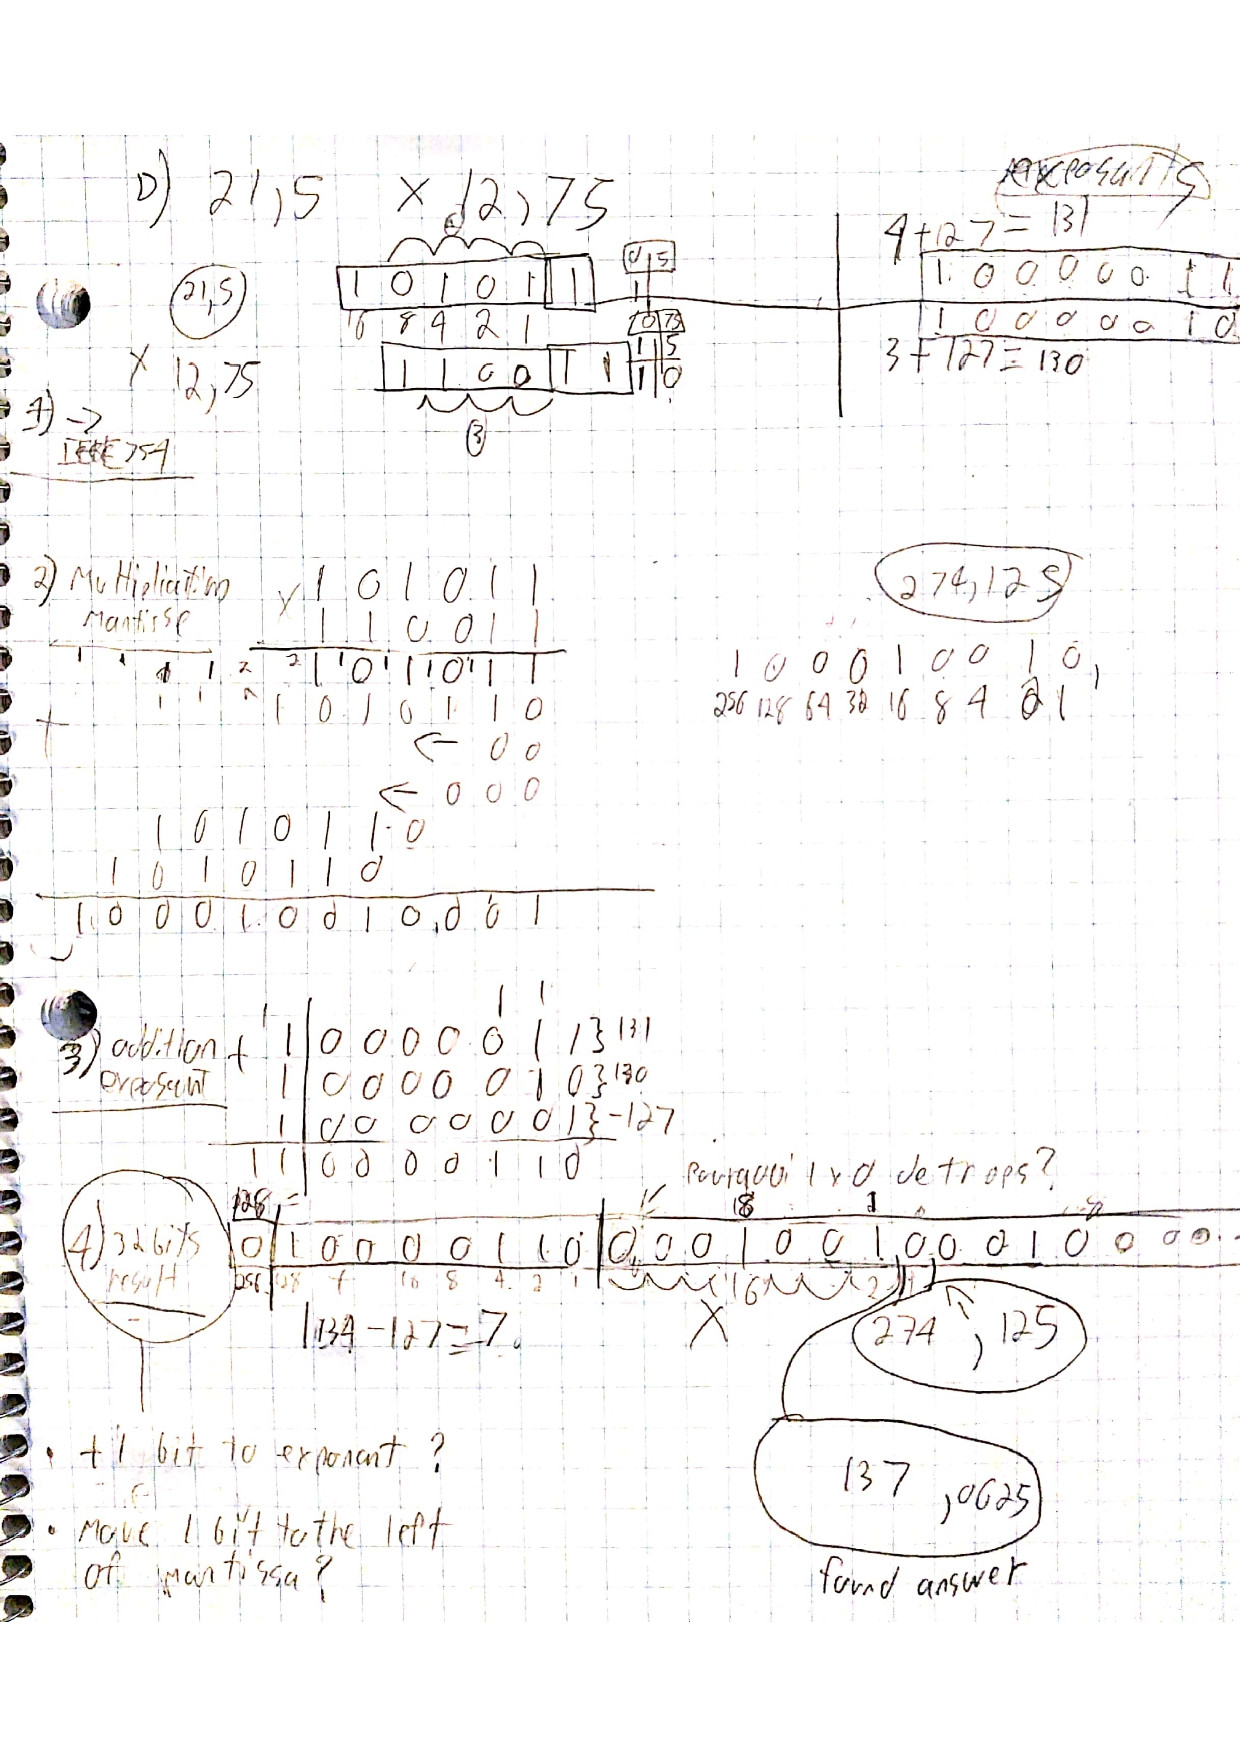 D) 21,5 × 12,75
exposants
4+127 = 131
1 0 0 0 0 0 1 1
1 0 0 0 0 0 1 0
3 + 127 = 130
21,5
1 0 1 0 1 1
16 8 4 2 1
0 5
1
0 75
1 5
1 0
× 12,75
1 1 0 0 1 1
3
1) →
IEEE 754
2) Multiplication
mantisse
× 1 0 1 0 1 1
1 1 0 0 1 1
1 0 1 0 1 1
1 0 1 0 1 1 0
← 0 0
← 0 0 0
1 0 1 0 1 1 0
1 0 1 0 1 1 0
1 0 0 0 1 0 0 1 0,0 0 1
274,125
1 0 0 0 1 0 0 1 0,
256 128 64 32 16 8 4 2 1
3) addition
exposant
1 1
+ 1 0 0 0 0 0 1 1 } 131
1 0 0 0 0 0 1 0 } 130
1 0 0 0 0 0 0 1 } -127
1 1 0 0 0 0 1 1 0
Pourquoi 1 × 0 de trops?
4) 32 bits
result
128 =
0 1 0 0 0 0 1 1 0 0 0 0 1 0 0 1 0 0 0 1 0 0 0 0...
256 128 16 8 4 2 1 16 2
134 - 127 = 7
X
274 , 125
137 ,0625
found answer
• +1 bit to exponant ?
• Move 1 bit to the left
of mantissa ?